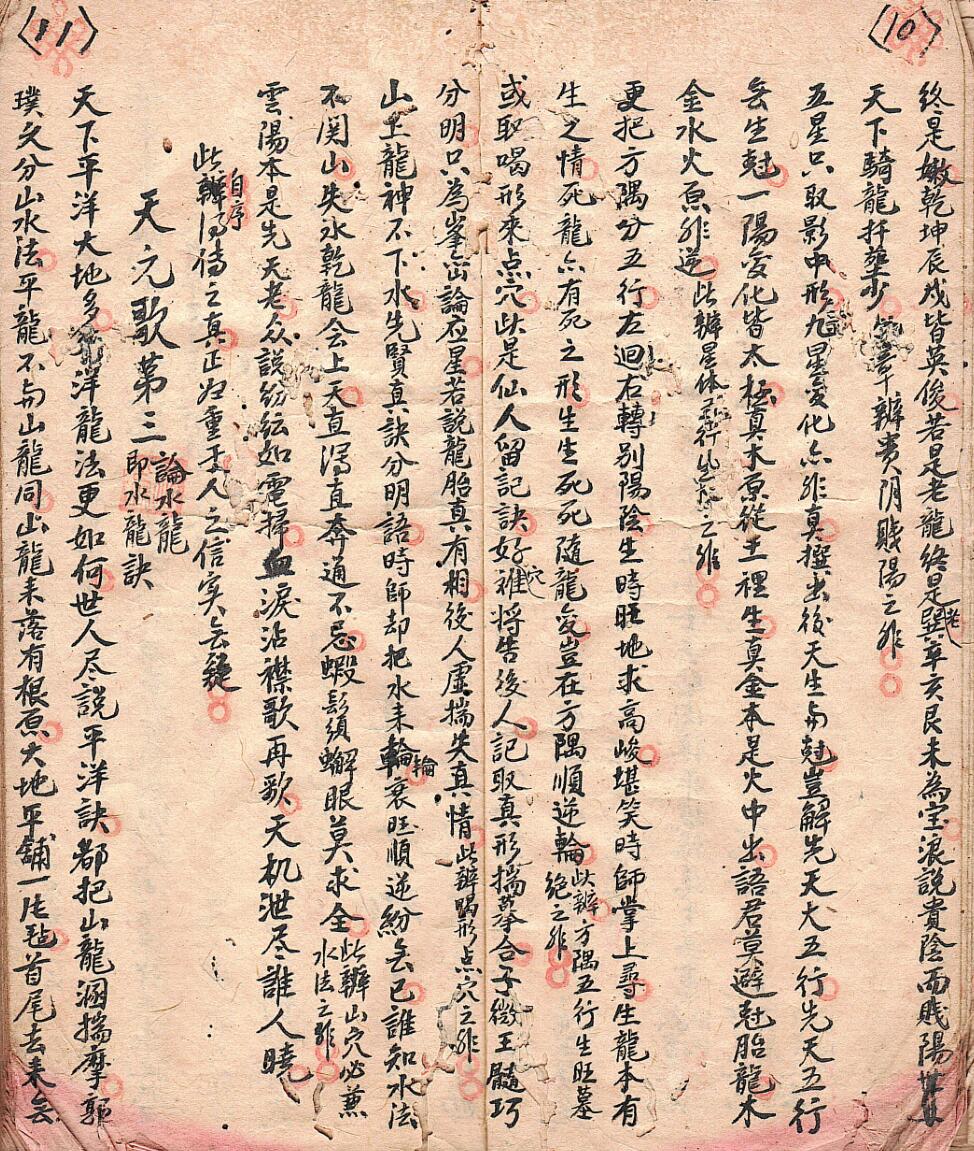 〈10〉
終是嫩乾坤辰戍皆英俊若是老龍終是老巽辛亥艮未為宝浪説貴陰而賎陽
天下騎龍扦塟少 辨貴阴賎陽之非
五星只取影中形九星变化亦非真撰出後天生与尅豈解先天大五行先天五行
無生尅一陽変化皆太極真木原從土裡生真金本是火中出語君莫避尅胎龍木
金水火原非逆 此辨星体五行生尅之非
更把方隅分五行左迴右轉別陽陰生時旺地求高峻堪笑時師掌上尋生龍本有
生之情死龍亦有死之形生生死死隨龍变豈在方隅順逆輪 此辨方隅五行生旺墓絶之非
或取喝形來点穴此是仙人留記訣好穴誰將告後人記取真形揣摹合子微玉髓巧
分明只為峯巒論应星若説龍胎真有相後人虚揣失真情 此辨喝形点穴之非
山上龍神不下水先賢真訣分明語時師却把水来輪衰旺順逆紛無已誰知水法
不関山失水乾龍会上天直瀉直奔通不忌蝦鬚蠏眼莫求全 此辦山穴必兼水法之非
雲陽本是先天老众説紛紜如電掃血淚沾襟歌再歌天机泄尽誰人曉
自序
此辦得传之真正归重于人之信实無疑
天元歌第三 論水龍 即水龍訣
天下平洋大地多平洋龍法更如何世人尽説平洋訣都把山龍溷揣摩郭
〈11〉
璞文分山水法平龍不与山龍同山龍来落有根原大地平舖一片毡首尾去来無